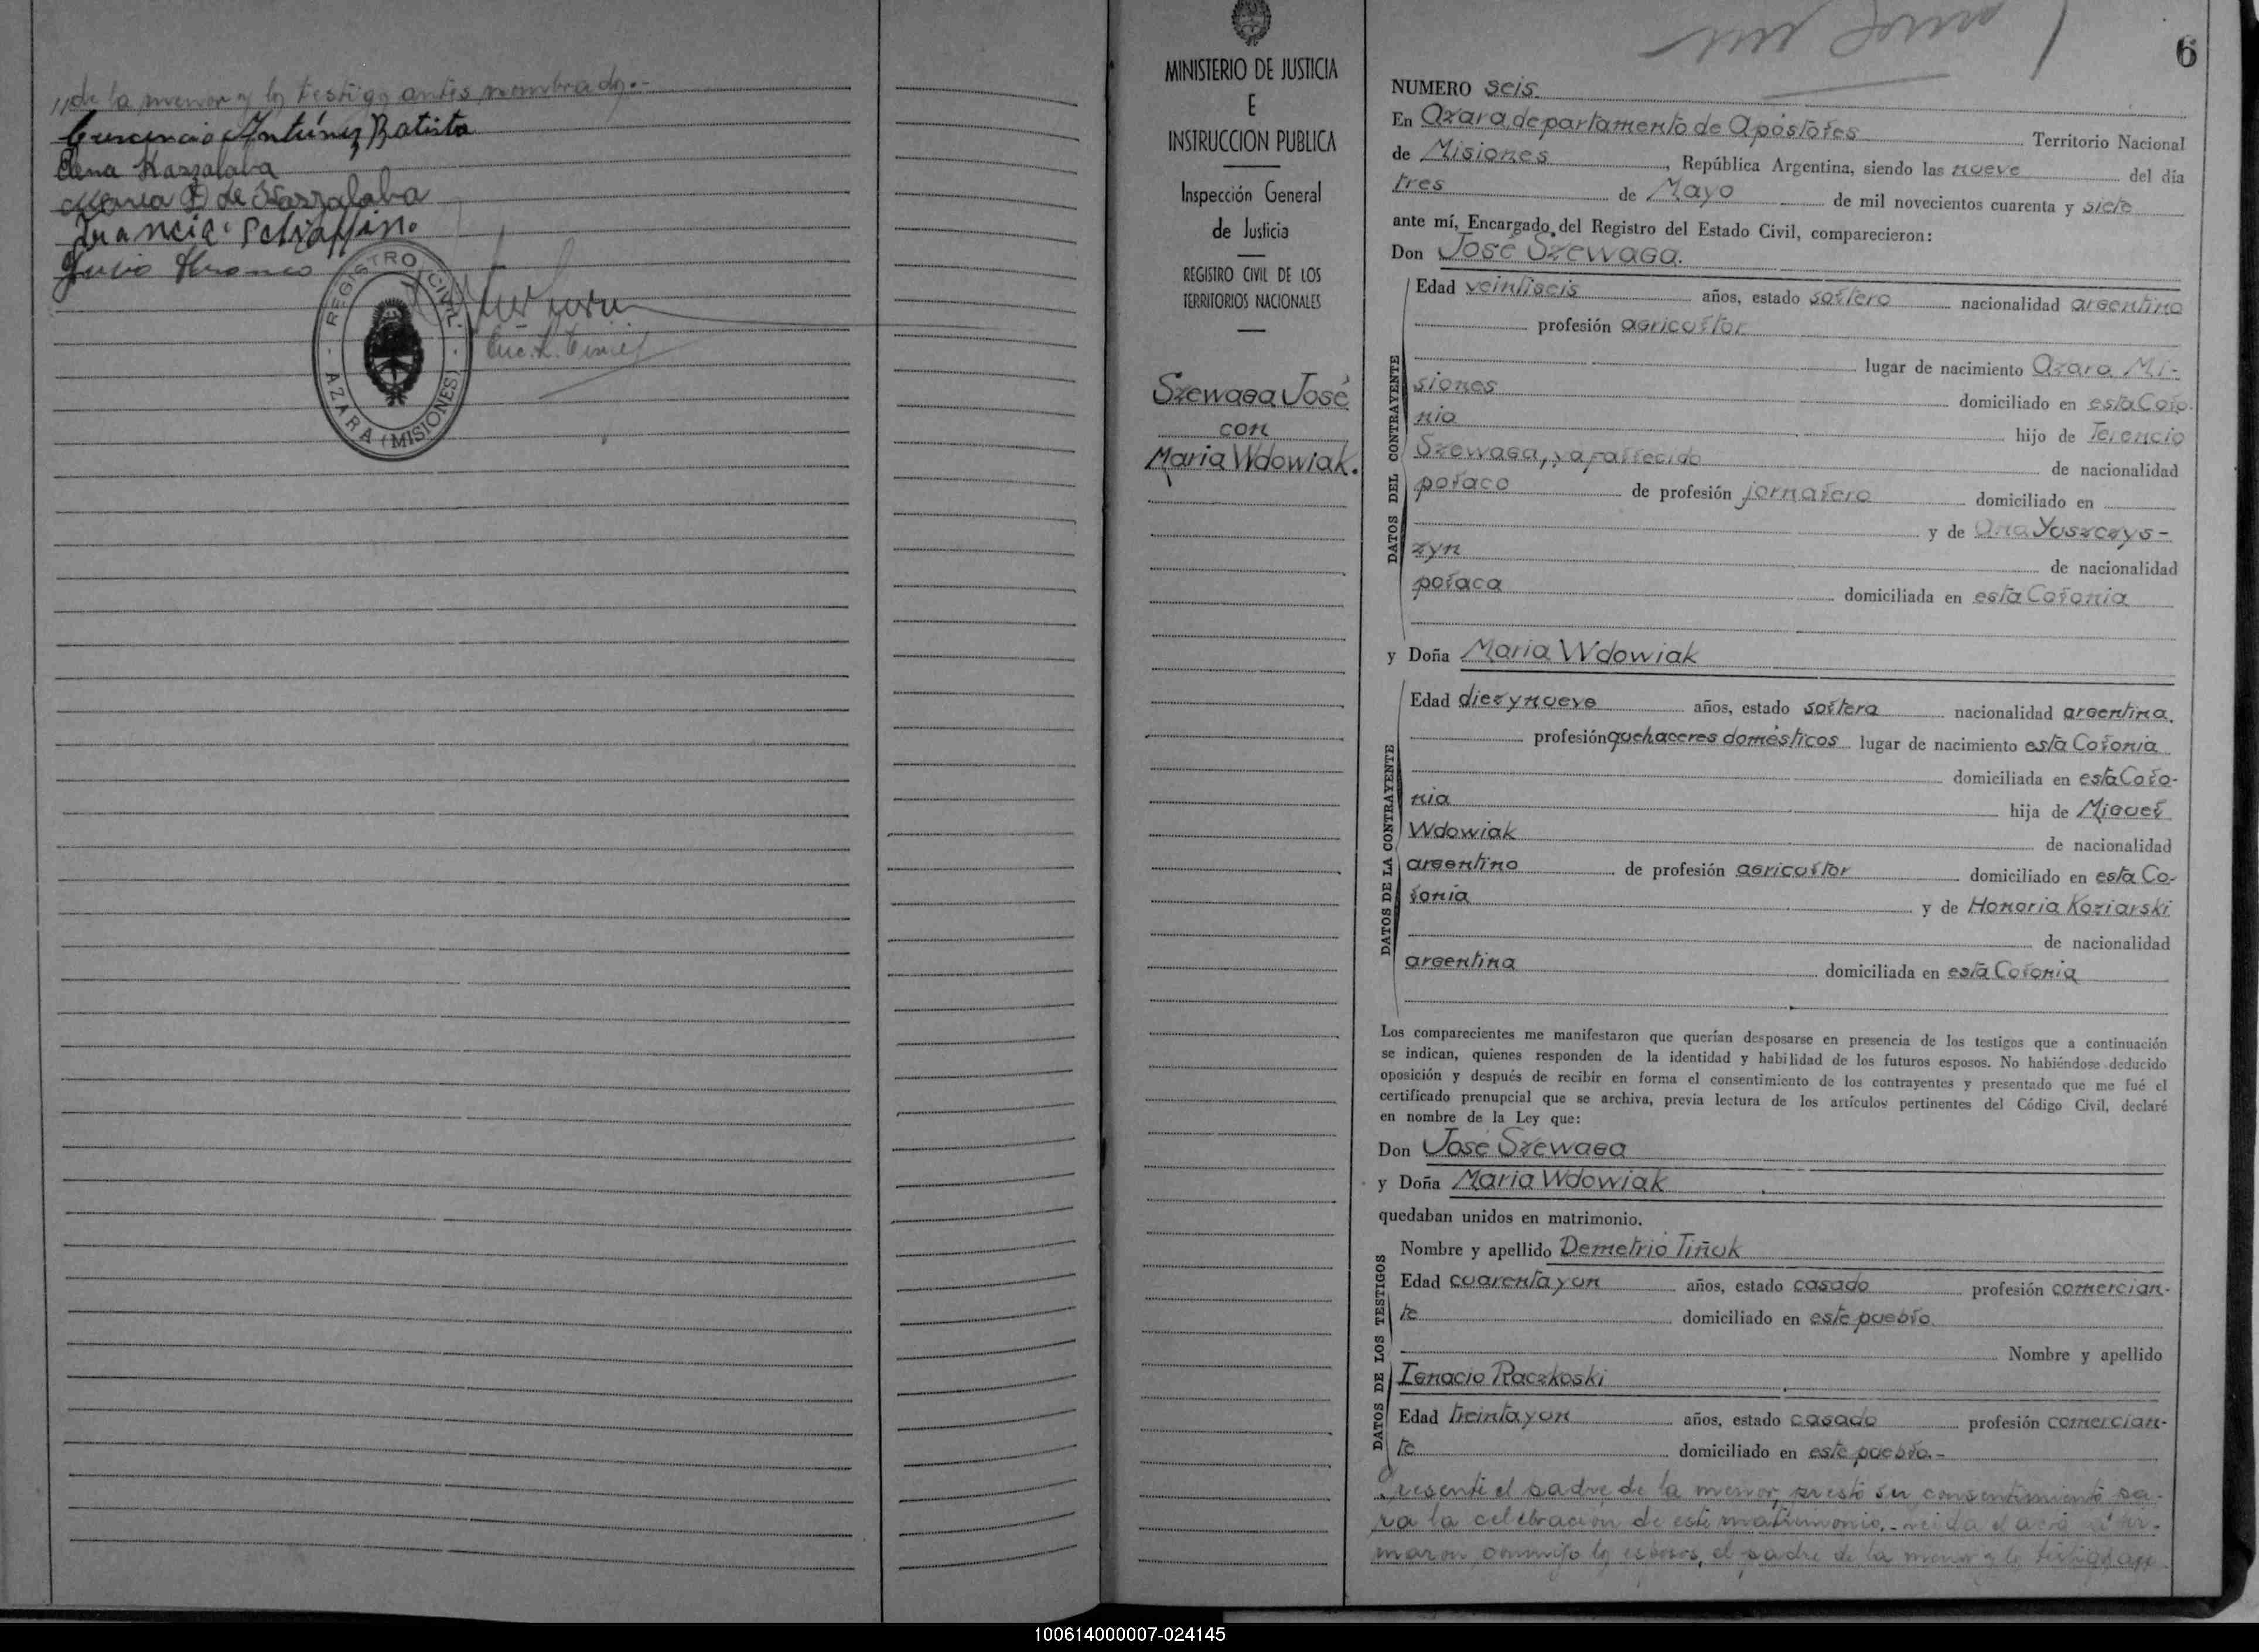 „de la menor y los testigos antes nombrados.-
Crescencio Antúnez Batista
Elena Kaszalaba
Maria D de Kaszalaba
Julio Franco
REGISTRO CIVIL
AZARA (MISIONES)
MINISTERIO DE JUSTICIA
E
INSTRUCCION PUBLICA
Inspección General
de Justicia
REGISTRO CIVIL DE LOS
TERRITORIOS NACIONALES
Szewaga José
con
Maria Wdowiak.
6
NUMERO seis
En Azara, departamento de Apóstoles Territorio Nacional
de Misiones, República Argentina, siendo las nueve del día
tres de Mayo de mil novecientos cuarenta y siete
ante mí, Encargado del Registro del Estado Civil, comparecieron:
Don José Szewaga.
DATOS DEL CONTRAYENTE
Edad veintiseis años, estado soltero nacionalidad argentino
profesión agricultor
lugar de nacimiento Azara Mi-
siones domiciliado en esta Colo-
nia hijo de Terencio
Szewaga, ya fallecido de nacionalidad
polaco de profesión jornalero domiciliado en
y de Ana Yuszczys-
zyn de nacionalidad
polaca domiciliada en esta Colonia
y Doña Maria Wdowiak
DATOS DE LA CONTRAYENTE
Edad diez y nueve años, estado soltera nacionalidad argentina.
profesión quehaceres domésticos lugar de nacimiento esta Colonia
domiciliada en esta Colo-
nia hija de Miguel
Wdowiak de nacionalidad
argentino de profesión agricultor domiciliado en esta Co-
lonia y de Honoria Koziarski
de nacionalidad
argentina domiciliada en esta Colonia
Los comparecientes me manifestaron que querían desposarse en presencia de los testigos que a continuación
se indican, quienes responden de la identidad y habilidad de los futuros esposos. No habiéndose deducido
oposición y después de recibir en forma el consentimiento de los contrayentes y presentado que me fué el
certificado prenupcial que se archiva, previa lectura de los artículos pertinentes del Código Civil, declaré
en nombre de la Ley que:
Don José Szewaga
y Doña Maria Wdowiak
quedaban unidos en matrimonio.
DATOS DE LOS TESTIGOS
Nombre y apellido Demetrio Tiñuk
Edad cuarenta y un años, estado casado profesión comercian-
te domiciliado en este pueblo.
Nombre y apellido
Ignacio Raczkoski
Edad treinta y un años, estado casado profesión comercian-
te domiciliado en este pueblo.-
Presente el padre de la menor, prestó su consentimiento pa-
ra la celebración de este matrimonio.- Leida el acta la fir-
maron conmigo los esposos, el padre de la menor y los testigos an
100614000007-024145